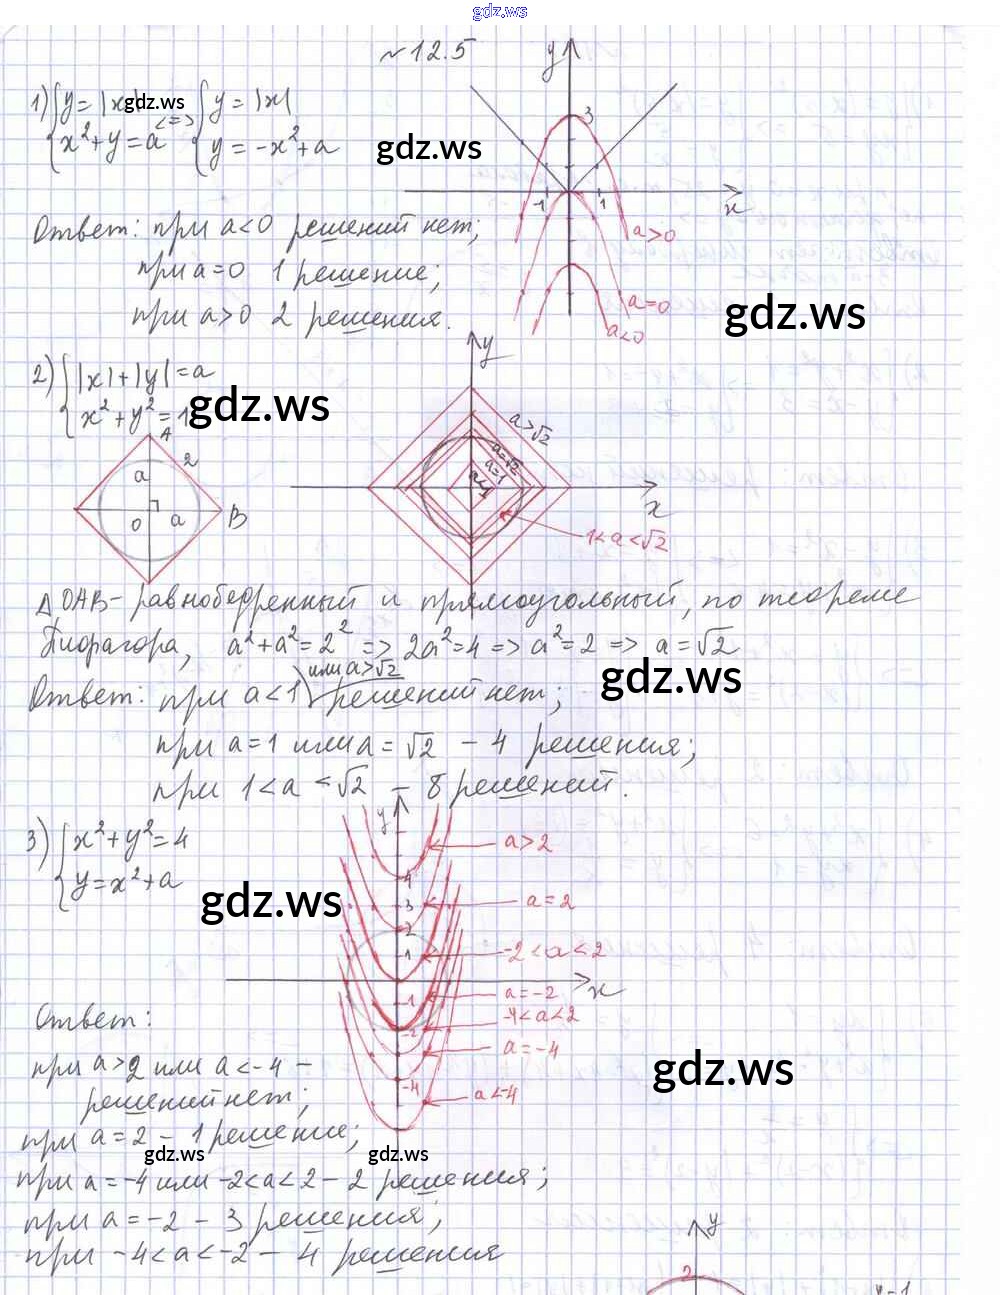 gdz.ws
№12.5
1) { y = |x| <=> { y = |x|
x² + y = a y = -x² + a
gdz.ws
gdz.ws
y
3
-1 1 x
a>0
a=0
a<0
Ответ: при a<0 решений нет;
при a=0 1 решение;
при a>0 2 решения.
gdz.ws
2) { |x|+|y| = a
x² + y² = 1
gdz.ws
A
2
a
O a B
y
a>√2
a=√2
a=1
a<1
x
1<a<√2
Δ OAB - равнобедренный и прямоугольный, по теореме
Пифагора, a² + a² = 2² => 2a² = 4 => a² = 2 => a = √2
gdz.ws
Ответ: при a<1 или a>√2 решений нет;
при a=1 или a = √2 - 4 решения;
при 1<a<√2 - 8 решений.
3) { x² + y² = 4
y = x² + a
gdz.ws
y
4
3
2
1
-1
-2
-4
x
a>2
a=2
-2<a<2
a=-2
-4<a<2
a=-4
a<-4
Ответ:
при a>2 или a<-4 -
решений нет;
gdz.ws
при a=2 - 1 решение;
gdz.ws gdz.ws
при a=-4 или -2<a<2 - 2 решения;
при a=-2 - 3 решения;
при -4<a<-2 - 4 решения
y
2